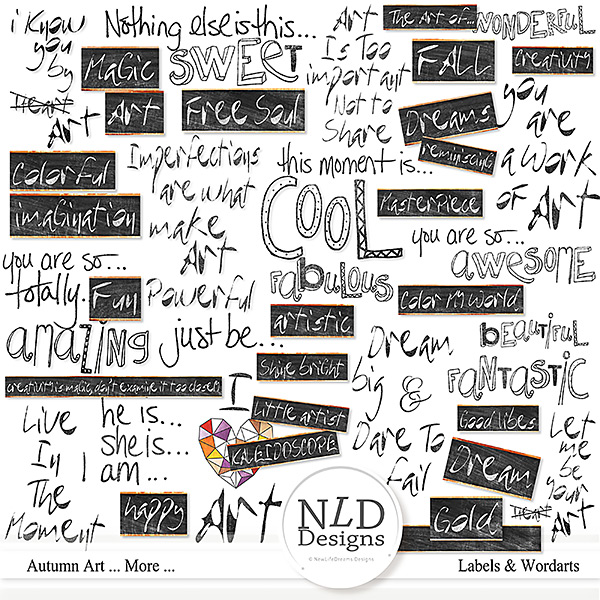 i Know
you
by
Heart
Art
Nothing else is this...
Magic
SWEET
Art
Free Soul
NLD
Art
Is Too
important
Not to
Share
The Art of...
WONDERFUL
FALL
Creativity
Dreams
reminiscing
you
are
a Work
of Art
Colorful
imagination
Imperfections
are what
make
Art
this moment is...
COOL
Masterpiece
you are so...
awesome
you are so...
totally...
Fun
Powerful
Fabulous
Color My World
amazing
just be...
artistic
Dream
big
&
Dare To
Fail
beautiful
FANTASTIC
creativity is magic, don't examine it too closely
Shine bright
I
Little artist
KALEIDOSCOPE
Good Vibes
Live
In
The
Moment
he is...
she is...
I am...
Dream
Let
me
be
your
Heart
Art
happy
Art
Gold
NLD
Designs
© NewLifeDreams Designs
Autumn Art ... More ...
Labels & Wordarts